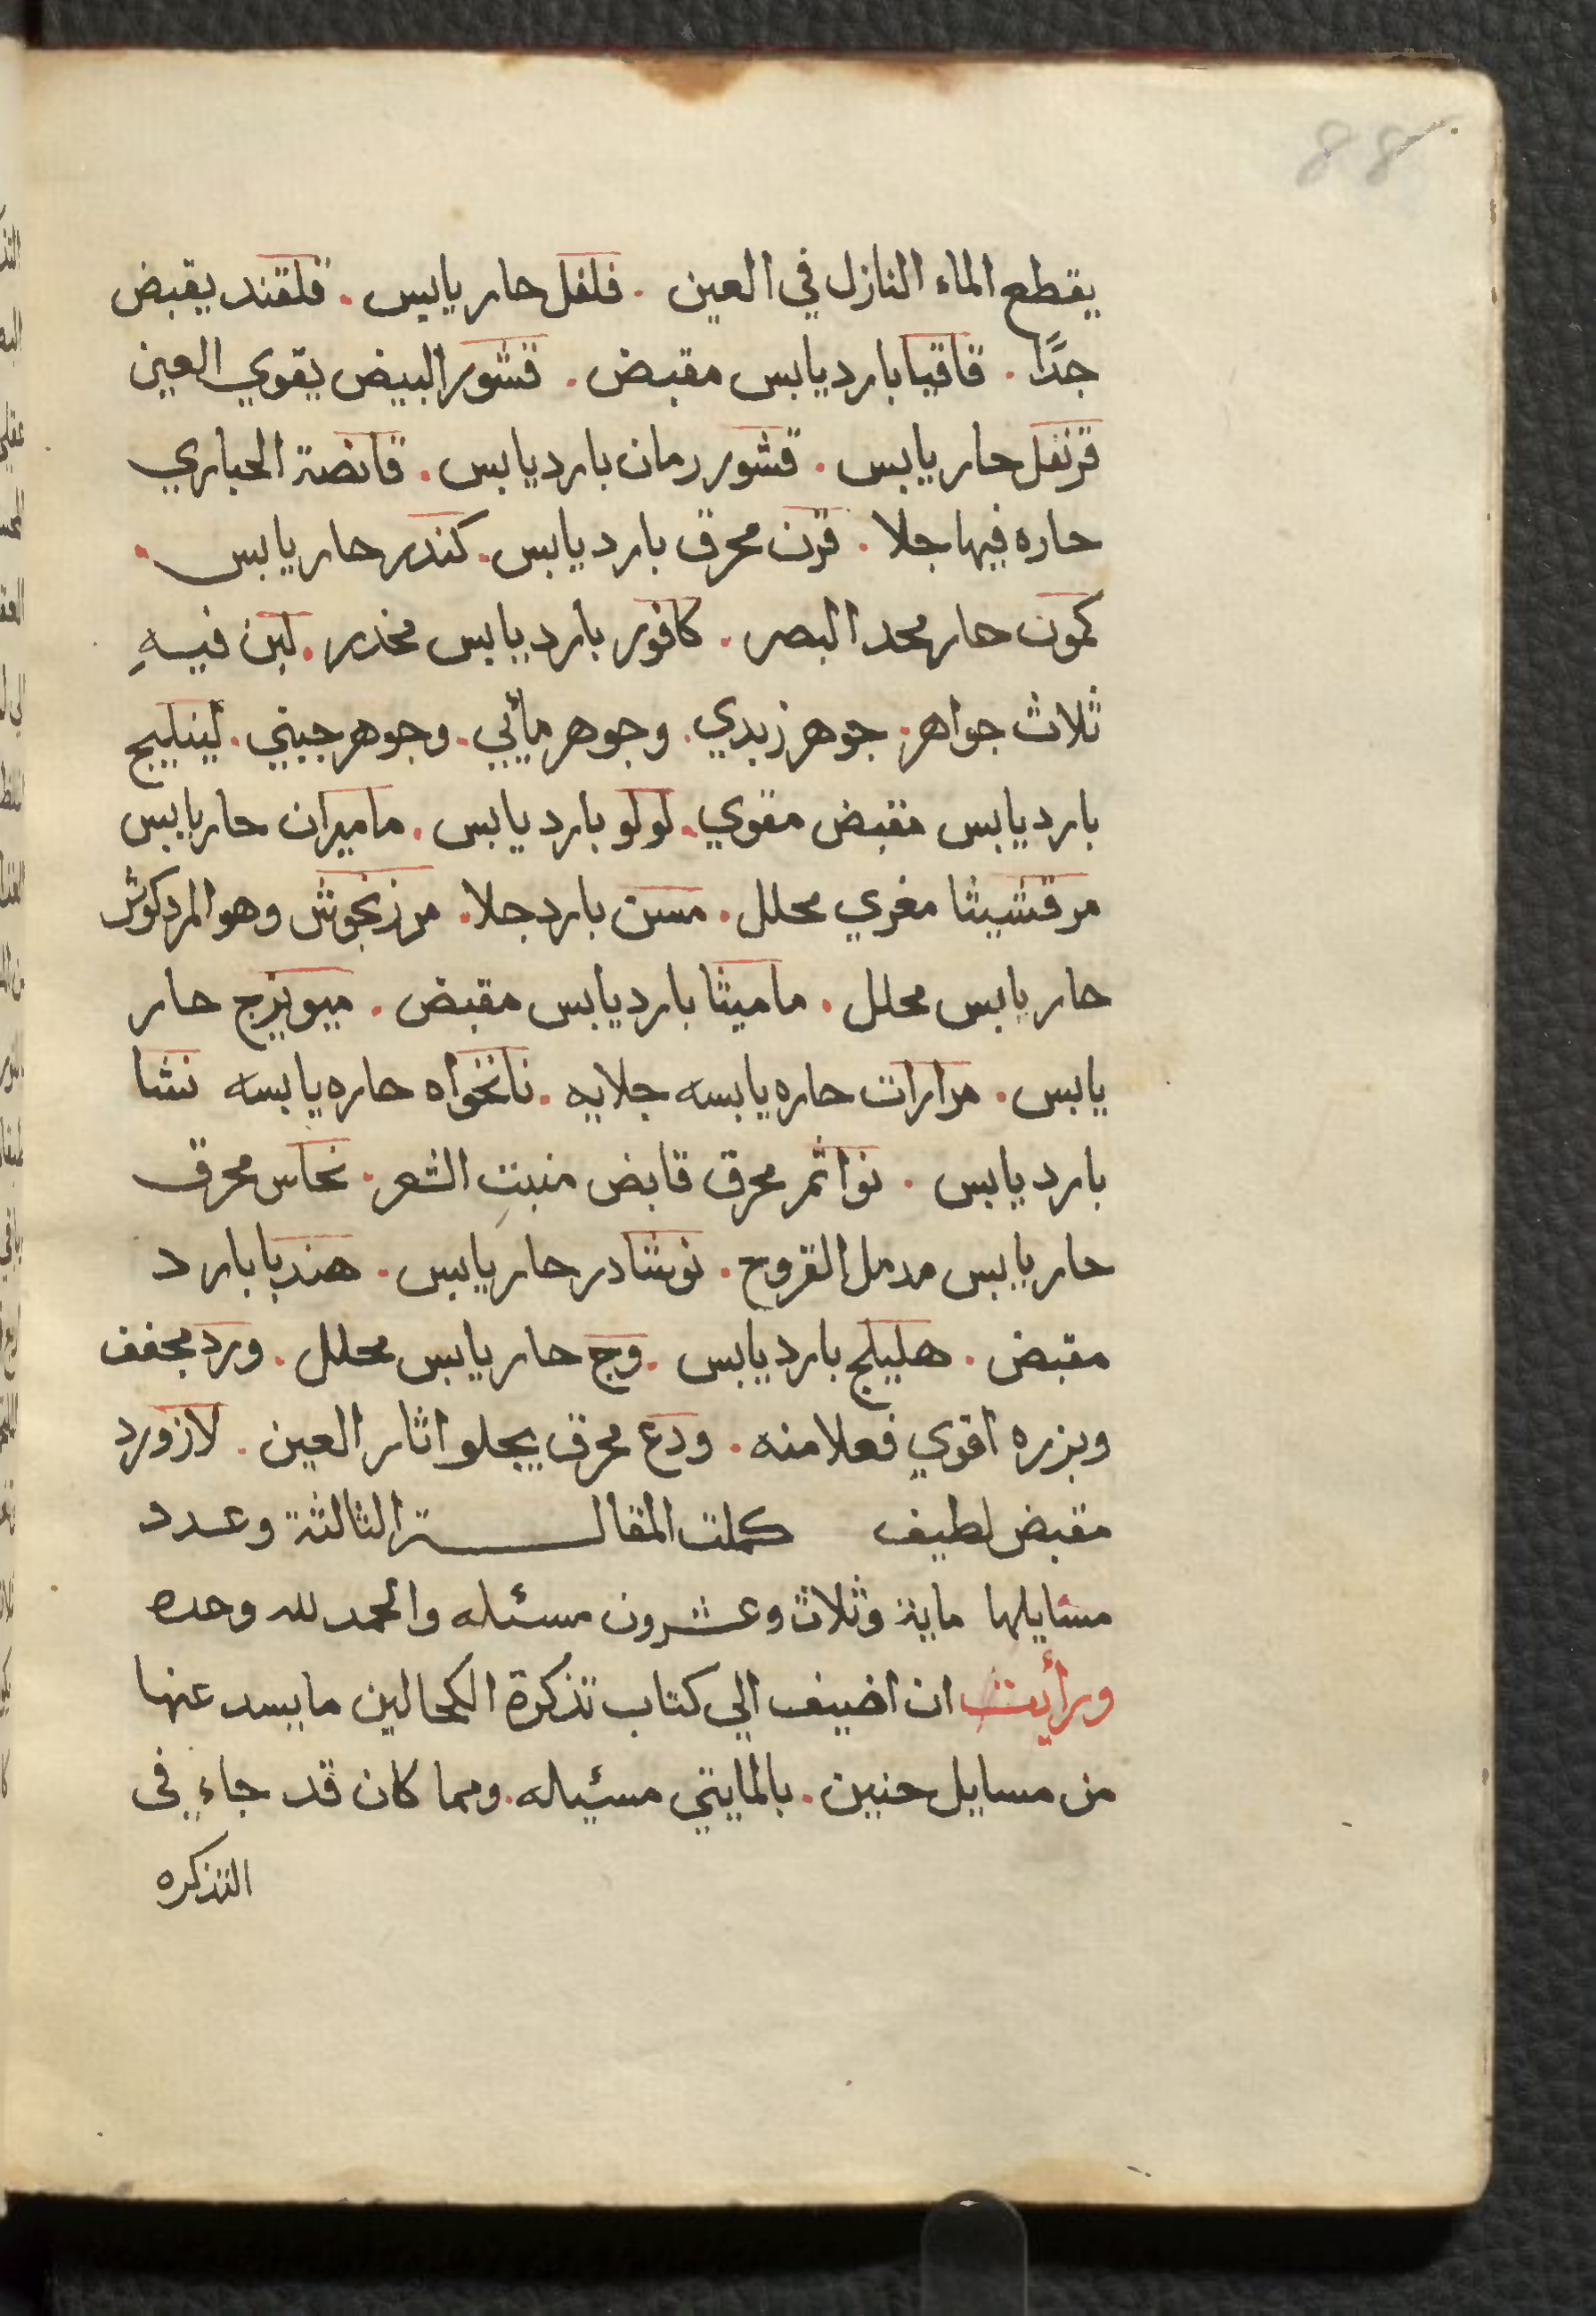 88
يقطع الماء النازل في العين . فلفل حار يابس . قلقند يقبض
جدًا . قاقيا بارد يابس مقبض . قشور البيض يقوي العين
قرنفل حار يابس . قشور رمان بارد يابس . قانصة الحباري
حاره فيها جلا . قرن محرق بارد يابس . كندر حار يابس .
كمون حار محد البصر . كافور بارد يابس مخدر . لبن فيهِ
ثلاث جواهر . جوهر زبدي . وجوهر مأيي . وجوهر جبني . لينليج
بارد يابس مقبض مقوي . لولو بارد يابس . ماميران حار يابس
مرقشيثا مغري محلل . مسن بارد جلا . مرزنجوش وهو المردكوش
حار يابس محلل . ماميثا بارد يابس مقبض . ميويزج حار
يابس . مرارات حاره يابسه جلايه . نانخواه حاره يابسه نشا
بارد يابس . نوا ثمر محرق قابض منبتِ الشعر . نحاس محرق
حار يابس مدمل القروح . نوشادر حار يابس . هندبا بارد
مقبض . هليلج بارد يابس . وج حار يابس محلل . ورد مجفف
وبزره اقوي فعلا منه . ودع محرق يجلو اثار العين . لازورد
مقبض لطيف كملت المقالة الثالثة وعدد
مسايلها ماية وثلاث وعشرون مسئله والحمد لله وحده
ورأيت ان اضيف الي كتاب تذكرة الكحالين ما يسد عنها
من مسايل حنين . بالمايتي مسئيله . ومما كان قد جاءِ في
التذكره